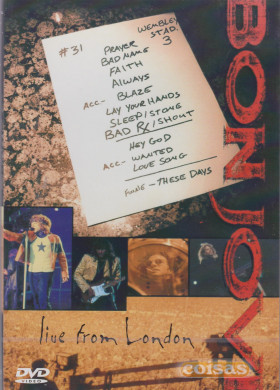 WEMBLEY
STAD.
#31
3
PRAYER
BAD NAME
FAITH
ALWAYS
ACC- BLAZE
LAY YOUR HANDS
SLEEP/STONE
BAD RX/SHOUT
HEY GOD
ACC- WANTED
LOVE SONG
FINE - THESE DAYS
BON JOVI
live from London
DVD
VIDEO
coisas